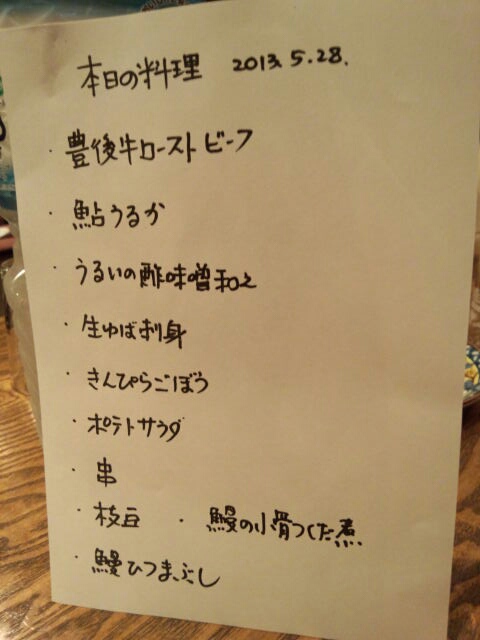 本日の料理 2013.5.28.
・豊後牛ローストビーフ
・鮎うるか
・うるいの酢味噌和え
・生ゆば刺身
・きんぴらごぼう
・ポテトサラダ
・串
・枝豆 ・鰻の小骨つくだ煮
・鰻ひつまぶし